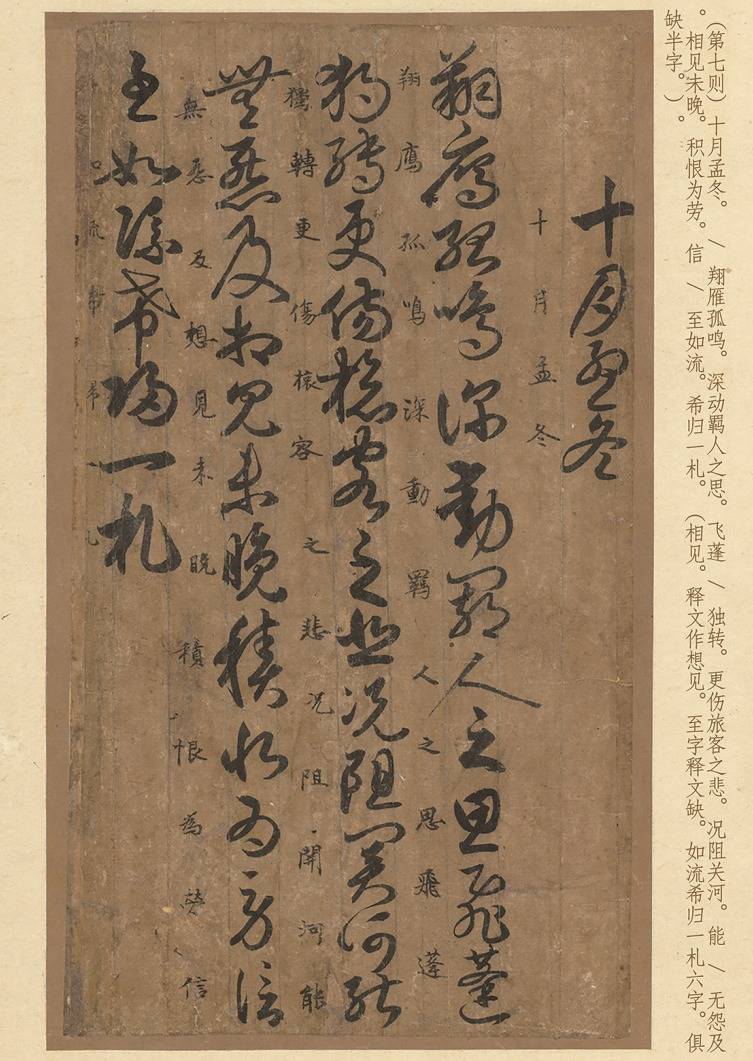 （第七则）十月孟冬。/ 翔雁孤鸣。深动羁人之思。飞蓬 / 独转。更伤旅客之悲。况阻关河。能 / 无怨及
。相见未晚。积恨为劳。信 / 至如流。希归一札。（相见。释文作想见。至字释文缺。如流希归一札六字。俱
缺半字。）。
十月孟冬
十月孟冬
翔鴈孤鳴深動羈人之思飛蓬
翔鴈孤鳴深動羈人之思飛蓬
獨轉更傷旅客之悲況阻關河能
獨轉更傷旅客之悲况阻開河能
無怨及相見未晚積恨為勞信
無怨及想見未晚積恨為勞信
至如流希歸一札